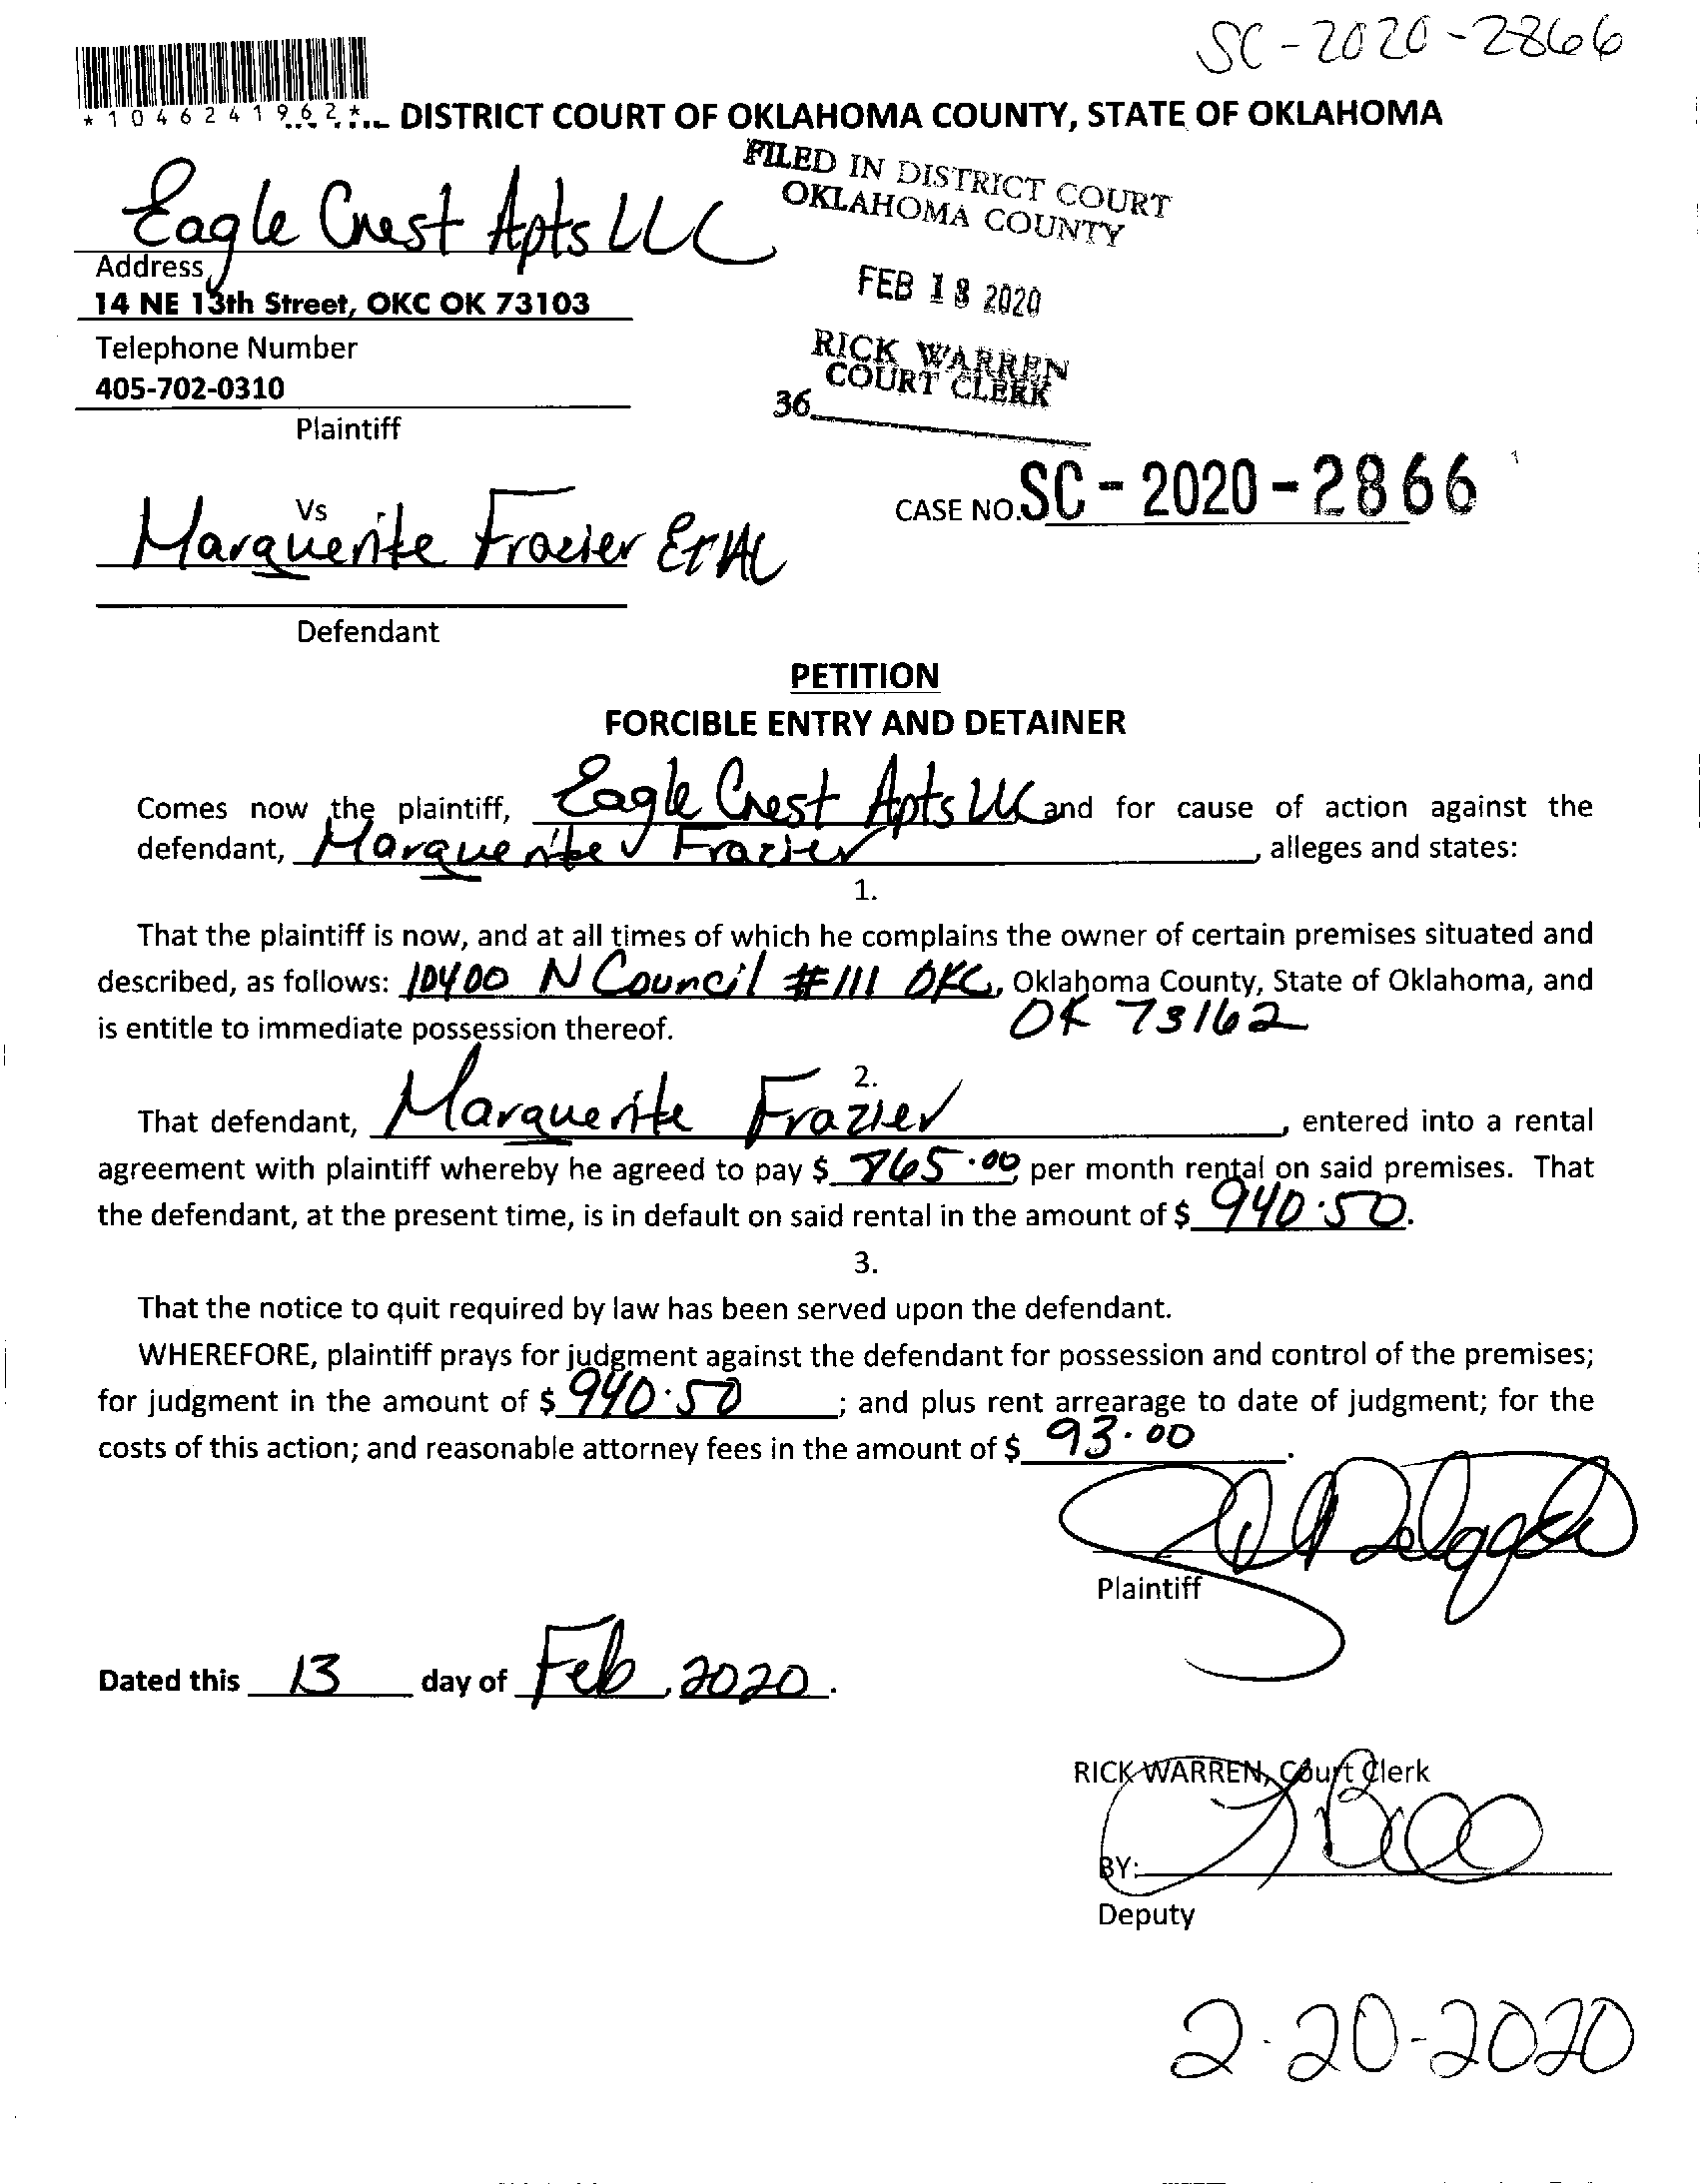 SC-2020-2866
*1046241962*
DISTRICT COURT OF OKLAHOMA COUNTY, STATE OF OKLAHOMA
FILED IN DISTRICT COURT
OKLAHOMA COUNTY
Eagle Crest Apts LLC
Address
14 NE 13th Street, OKC OK 73103
FEB 18 2020
Telephone Number
405-702-0310
RICK WARREN
COURT CLERK
36
Plaintiff
CASE NO. SC-2020-2866
Vs
Marguerite Frazier Et Al
Defendant
PETITION
FORCIBLE ENTRY AND DETAINER
Comes now the plaintiff, Eagle Crest Apts LLC and for cause of action against the
defendant, Marguerite Frazier, alleges and states:
1.
That the plaintiff is now, and at all times of which he complains the owner of certain premises situated and
described, as follows: 10400 N Council #111 OKC, Oklahoma County, State of Oklahoma, and
OK 73162
is entitle to immediate possession thereof.
2.
That defendant, Marguerite Frazier, entered into a rental
agreement with plaintiff whereby he agreed to pay $ .00 per month rental on said premises. That
the defendant, at the present time, is in default on said rental in the amount of $ 940.50.
3.
That the notice to quit required by law has been served upon the defendant.
WHEREFORE, plaintiff prays for judgment against the defendant for possession and control of the premises;
for judgment in the amount of $ 940.50; and plus rent arrearage to date of judgment; for the
costs of this action; and reasonable attorney fees in the amount of $ 93.00.
Plaintiff
Dated this 13 day of Feb, 2020.
RICK WARREN, Court Clerk
BY:
Deputy
2-20-2020